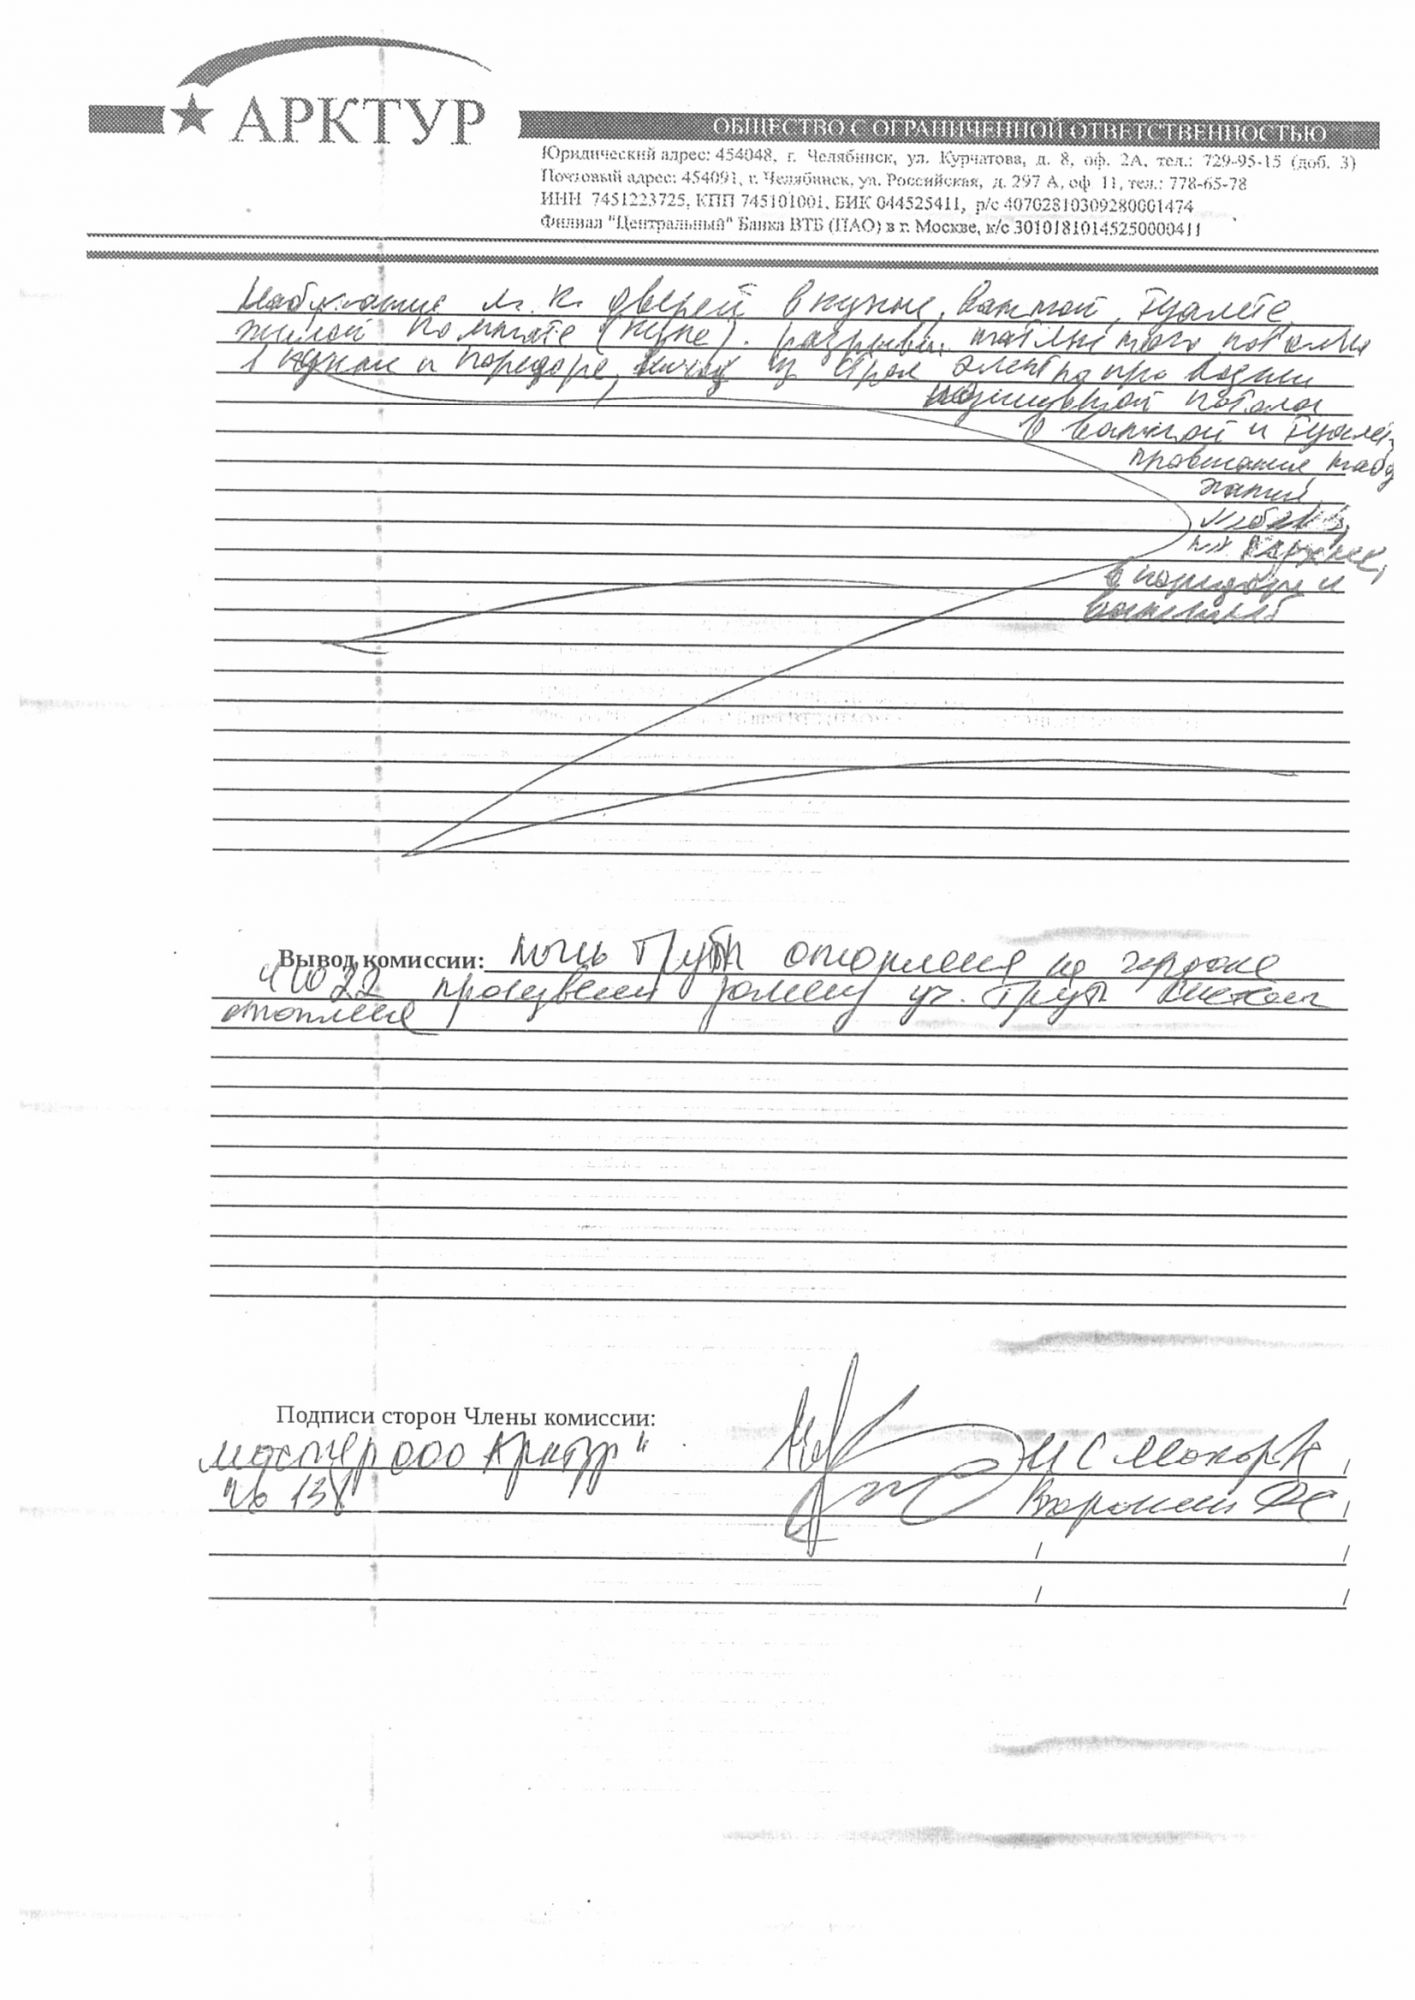 АРКТУР
ОБЩЕСТВО С ОГРАНИЧЕННОЙ ОТВЕТСТВЕННОСТЬЮ
Юридический адрес: 454048, г. Челябинск, ул. Курчатова, д. 8, оф. 2А, тел.: 729-95-15 (доб. 3)
Почтовый адрес: 454091, г. Челябинск, ул. Российская, д. 297 А, оф 11, тел.: 778-65-78
ИНН 7451223725, КПП 745101001, БИК 044525411, р/с 40702810309280001474
Филиал "Центральный" Банка ВТБ (ПАО) в г. Москве, к/с 30101810145250000411
Набухание м. к. дверей в кухне, ванной, туалете,
жилой комнате (купе). разрывы натяжного потолка
в кухне и коридоре, выход из строя электропроводки
потолок
в ванной и туалете
в коридоре и
Вывод комиссии: течь трубы отопления на чердаке
произвели замену уч. труб системы
отопления
Подписи сторон Члены комиссии:
мастер ООО Арктур"
кв 138